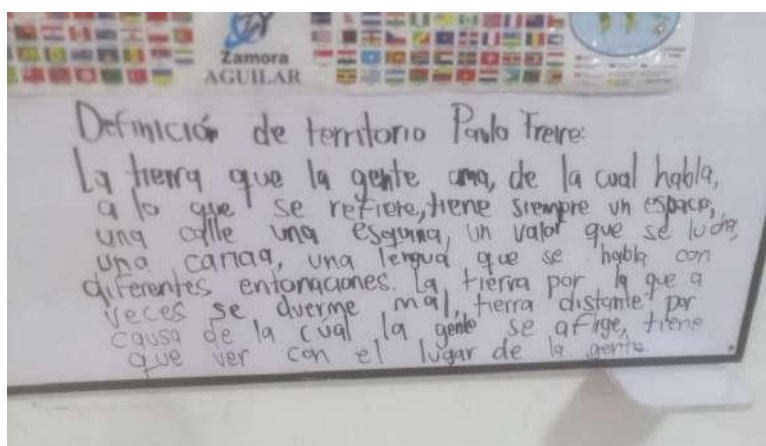 Zamora
AGUILAR
Definición de territorio Paulo Freire:
La tierra que la gente ama, de la cual habla,
a lo que se refiere, tiene siempre un espacio,
una calle una esquina, un valor que se lucha,
una una lengua que se habla con
diferentes entonaciones. La tierra por la que a
veces se duerme mal, tierra distante por
causa de la cúal la gente se aflige, tiene
que ver con el lugar de la gente.